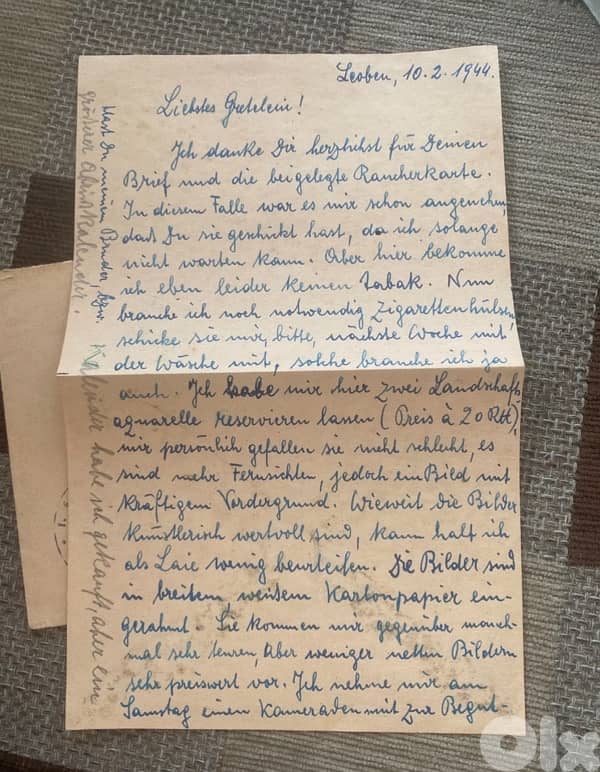 Leoben, 10.2.1944.
Liebstes Gretelein!
Ich danke Dir herzlichst für Deinen
Brief und die beigelegte Raucherkarte.
In diesem Falle war es mir schon angenehm,
dass Du sie geschickt hast, da ich solange
nicht warten kann. Aber hier bekomme
ich eben leider keinen Tabak. Nun
brauche ich noch notwendig Zigarettenhülsen,
schicke sie mir, bitte, nächste Woche mit
der Wäsche mit, solche brauche ich ja
auch. Ich habe mir hier zwei Landschafts
aquarelle reservieren lassen (Preis à 20 RM),
mir persönlich gefallen sie nicht schlecht, es
sind mehr Fernsichten, jedoch ein Bild mit
kräftigem Vordergrund. Wieweit die Bilder
künstlerisch wertvoll sind, kann halt ich
als Laie wenig beurteilen. Die Bilder sind
in breitem, weissem Kartonpapier ein-
gerahmt. Sie kommen mir gegenüber manch-
mal sehr teuren, aber weniger netten Bildern
sehr preiswert vor. Ich nehme mir am
Samstag einen Kameraden mit zur Begut-
Hast Du meinen Bruder, bzw.
Kalender habe ich gekauft, aber ein
grösserer Kalender.
olx